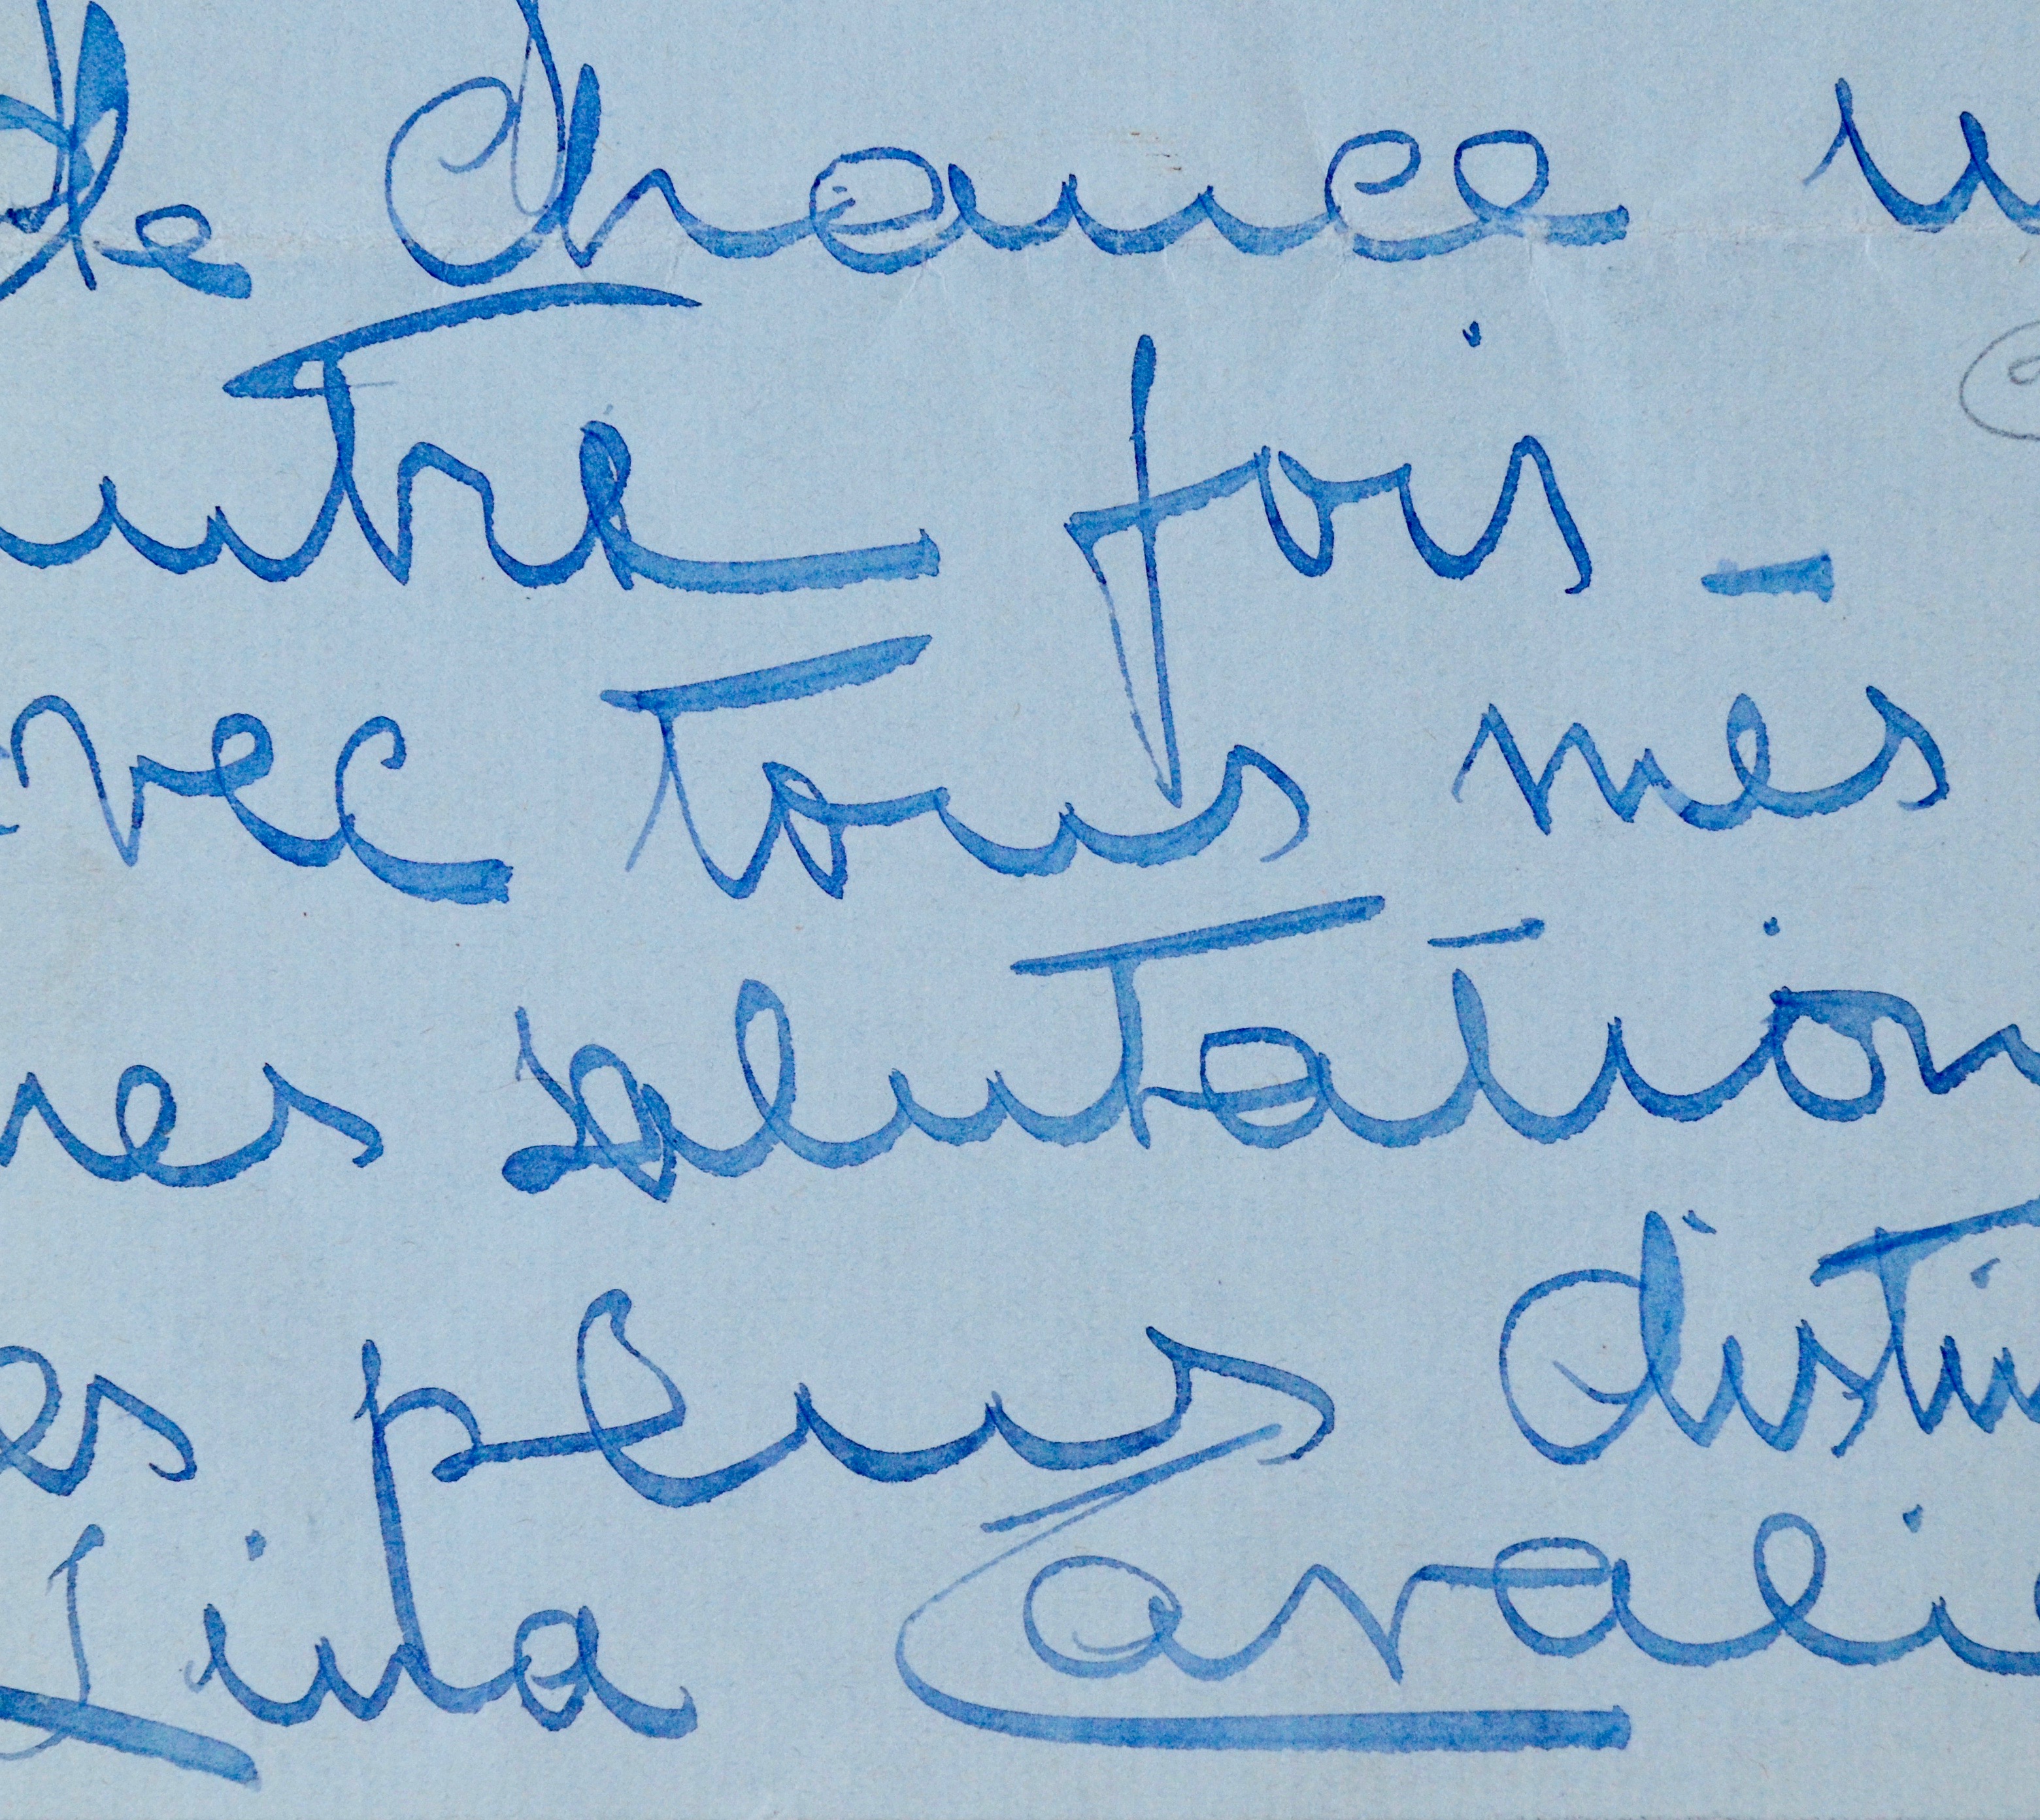 de chance u
utre fois -
vec tous mes
res salutation
es plus distin
Lina Cavalie